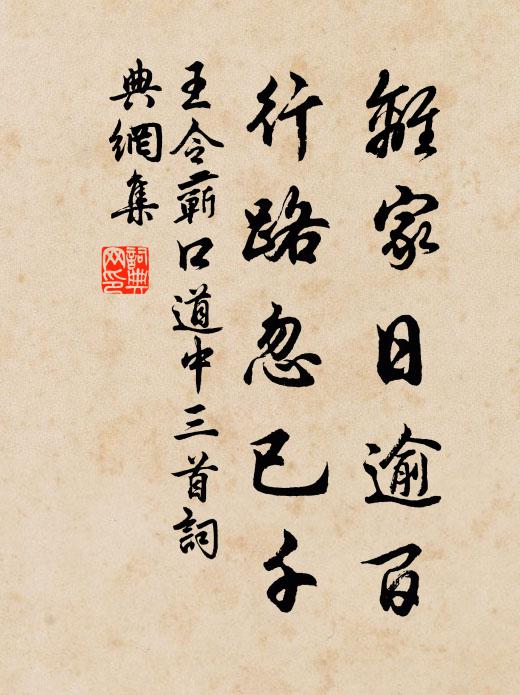 離家日逾百
行路忽已千
王令蘄口道中三首詞
典網集
詞典網印